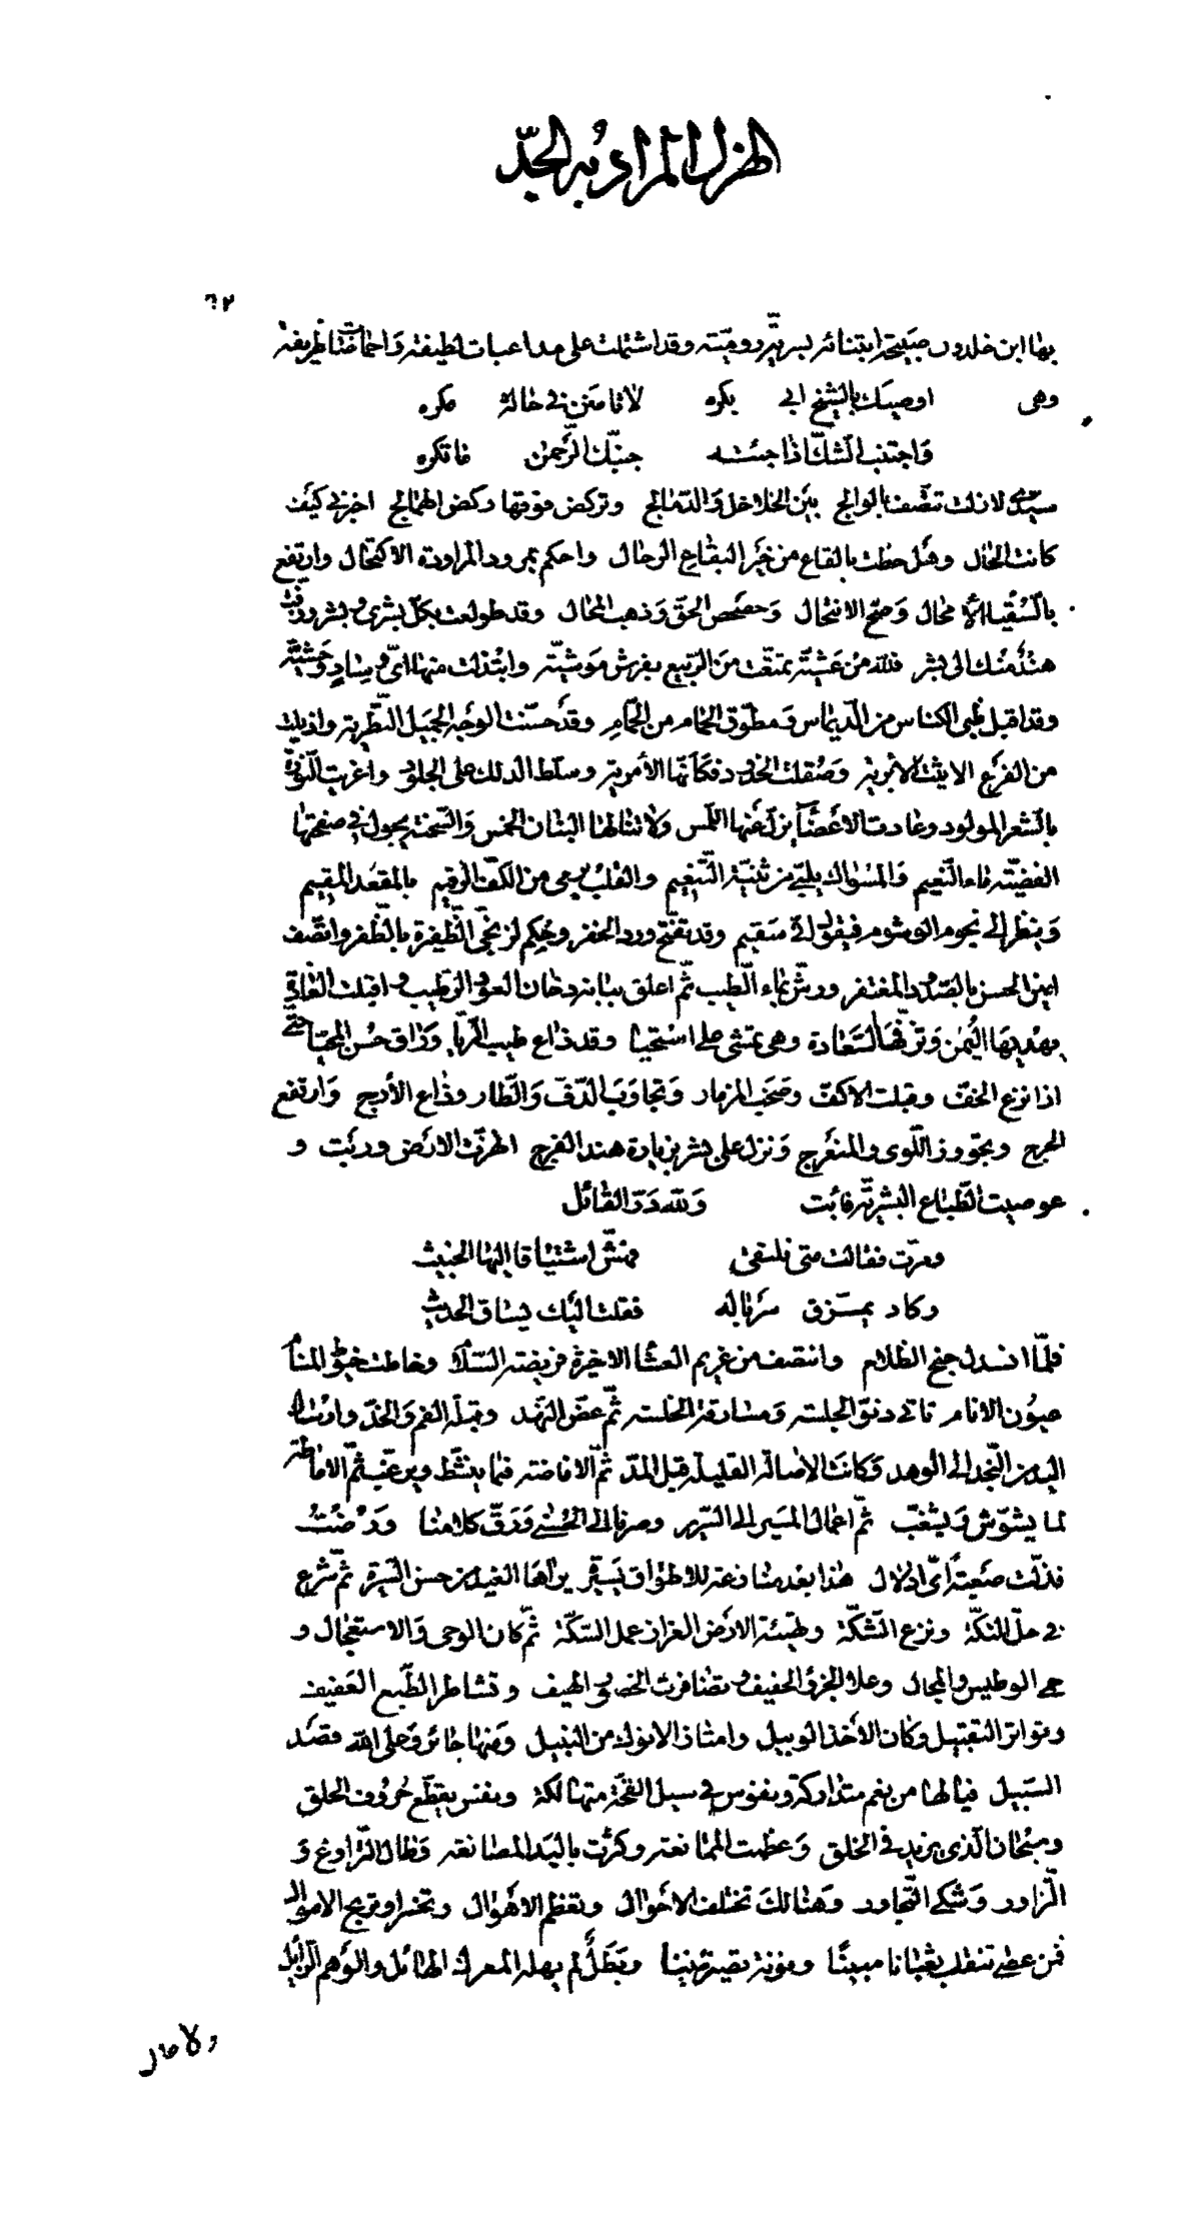 الهزل المراد به الجدّ
٦٢
بها ابن خلدون صبيحة ابتنائه بسرية رومية وقد اشتملت على مداعبات لطيفة واحماضات ظريفة
وهى اوصيك بالشيخ ابى بكره لا تأمنن فى حالة مكره
واجتنب الشك اذا جئته جنبك الرحمن ما تكره
سيدى لا زلت تتصف بالوالج بين الخلاخل والدمالج وتركض فوقها ركض الهمالج اخبرنى كيف
كانت الحال وهل حطت بالقاع من خير البقاع الرحال واحكم بمرود المراودة الاكتحال وارتفع
بالسقيا الامحال وصح الانتحال وحصحص الحق وذهب المحال وقد طولعت بكل بشرى وبشر وزفت
هند منك الى بشر فلله من عشية تمتعت من الربيع بفرش موشية وابتذلت منها اى وساد وحشية
وقد اقبل ظبى الكناس من الديماس ومطوق الحمام من الحمام وقد حسنت الوجه الجميل التطرية وازيلت
من الفرع الاثيث الابرية وصقلت الخدود فكأنها الأمرية وسلط الدلك على الجلود واغريت النورة
بالشعر المولود وعادت الاعضاء يزلق عنها اللمس ولا تنالها البنان الخمس والسحنة يجول فى صفحتها
الفضية ماء النعيم والمسواك يلبى من ثنية التنعيم والقلب يرمى من الكف الرقيم بالمقعد المقيم
وينظر الى نجوم الوشوم فيقول انى سقيم وقد تفتح ورد الخفر وحكم لزنجى الظفيرة بالظفر واتصف
امير الحسن بالصدود المغتفر ورش بماء الطيب ثم اعلق ببابه دخان العود الرطيب واقبلت الغادة
يهديها اليمن وتزفها السعادة وهى تمشى على استحيا وقد ذاع طيب الريا وراق حسن المحيا حتى
اذا نزع الخف وقبلت الاكف وصخب المزمار وتجاوب الدف والطار وذاع الأرج وارتفع
الحرج وتجوّوز اللوى والمنعرج ونزل على بشر بزيارة هند الفرج اهتزت الارض وربت و
عوصيت الطباع البشرية فابت ولله در القائل
ومرت فقالت متى نلتقى فهش اشتياقا اليها الخبيث
وكاد يمزق سرباله فقلت اليك يساق الحديث
فلما انسدل جنح الظلام وانتصف من غريم العشاء الاخيرة فريضة السلام وخاطت خيوط المنام
عيون الانام تأتى دنو الجلسة ومسارقة الخلسة ثم عض النهد وقبلة الفم والخد وارسال
اليد من النجد الى الوهد وكانت الامالة القليلة قبل المد ثم الافاضة فيما ينشط ويرغب ثم الاماطة
لما يشوش ويشغب ثم اعمال المسير الى السرير وصرنا الى الحسنى ورق كلامنا ورضت
فذلت صعبة اى اذلال هذا بعد منازعة للاطواق يسيرة يراها الغيد من حسن السيرة ثم شرع
فى حل التكة ونزع الشكة وتهيئة الارض العزاز عمل السكة ثم كان الوحى والاستعجال و
حمى الوطيس والمجال وعلا الجزء الخفيف وتضافرت الخصور الهيف وتشاطر الطبع العفيف
وتواتر التقبيل وكان الأخذ الوبيل وامتاز الانوك من النبيل ومنها جائر وعلى الله قصد
السبيل فيا لها من نعم متداركة ونفوس فى سبيل القحة متهالكة ونفس يقطع حروف الحلق
وسبحان الذى يزيد فى الخلق وعظمت الممانعة وكثرت باليد المصانعة وطال التراوغ و
التزاور وشكى التجاور وهنالك تختلف الاحوال وتعظم الاهوال وتخسر او تربح الاموال
فمن عصى تنقلب ثعبانا مبينا ونونة تصير تنينا وبطل لم يهله المعرك الهائل والوهم الزائل
ولا حال